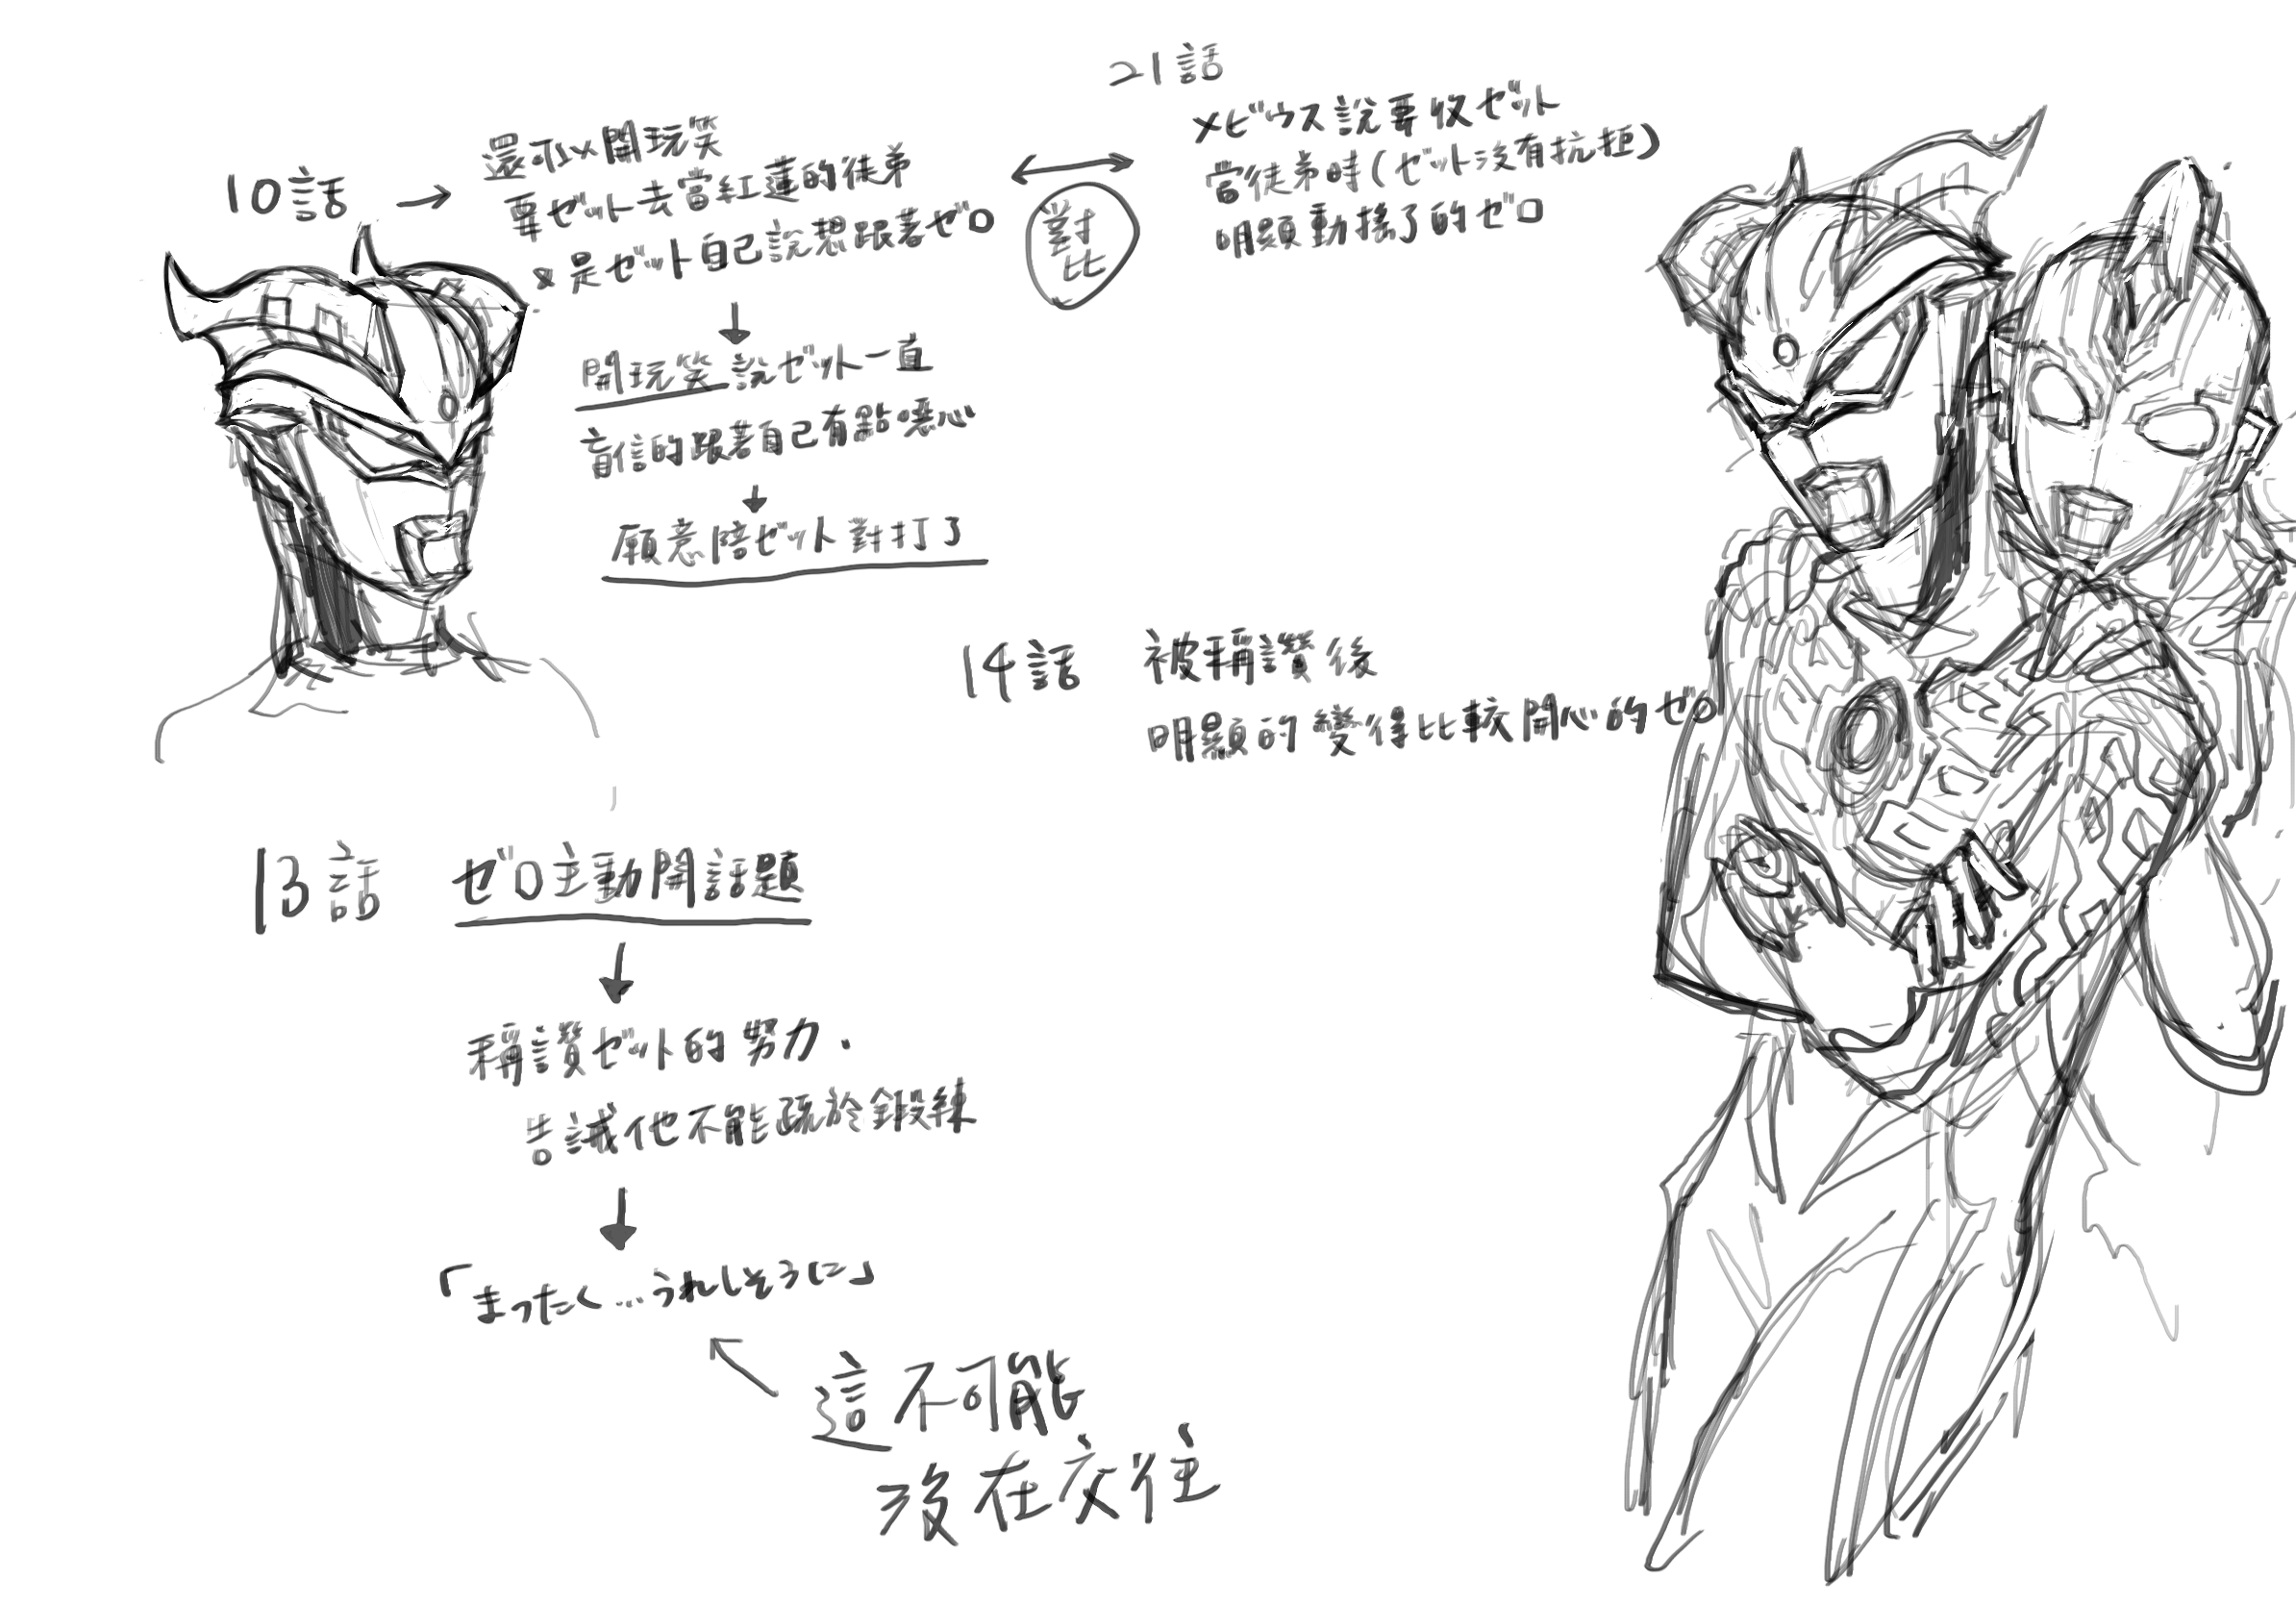 10話 →
還可以開玩笑
要ゼット去當紅蓮的徒弟
※是ゼット自己說想跟著ゼロ
↓
開玩笑說ゼット一直
盲信的跟著自己有點噁心
↓
願意陪ゼット對打了
↔
對比
21話
メビウス說要收ゼット
當徒弟時(ゼット沒有抗拒)
明顯動搖了的ゼロ
14話 被稱讚後
明顯的變得比較開心的ゼロ
13話 ゼロ主動開話題
↓
稱讚ゼット的努力.
告誡他不能疏於鍛鍊
↓
「まったく…うれしそうに」
這不可能
沒在交往